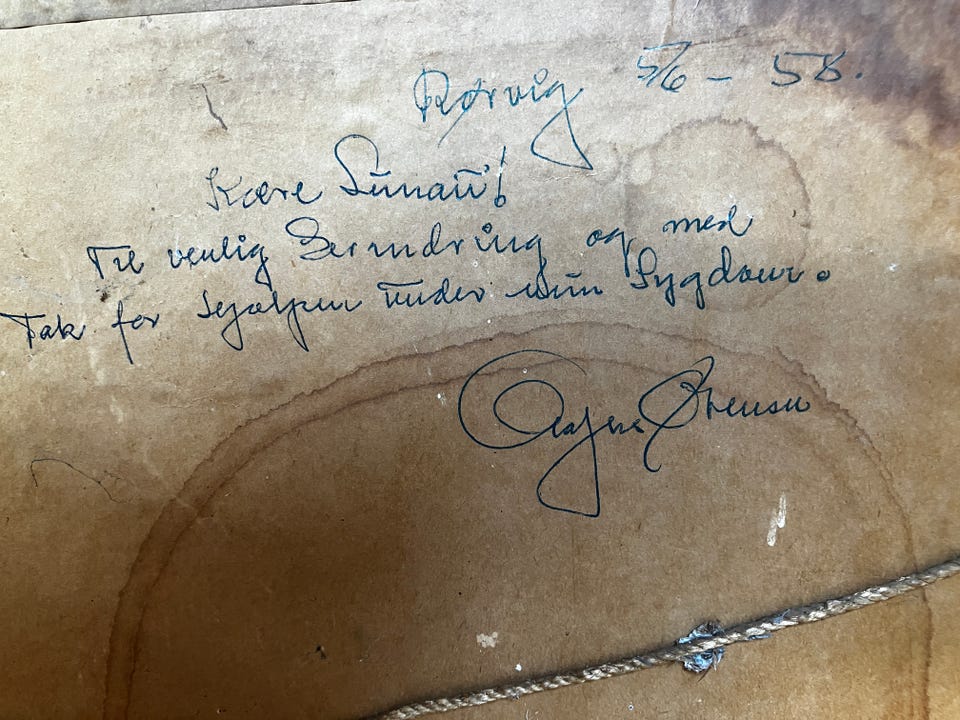 Rørvig 5/6 - 58.
Kære
Til venlig Erindring og med
Tak for Hjælpen under min Sygdom.